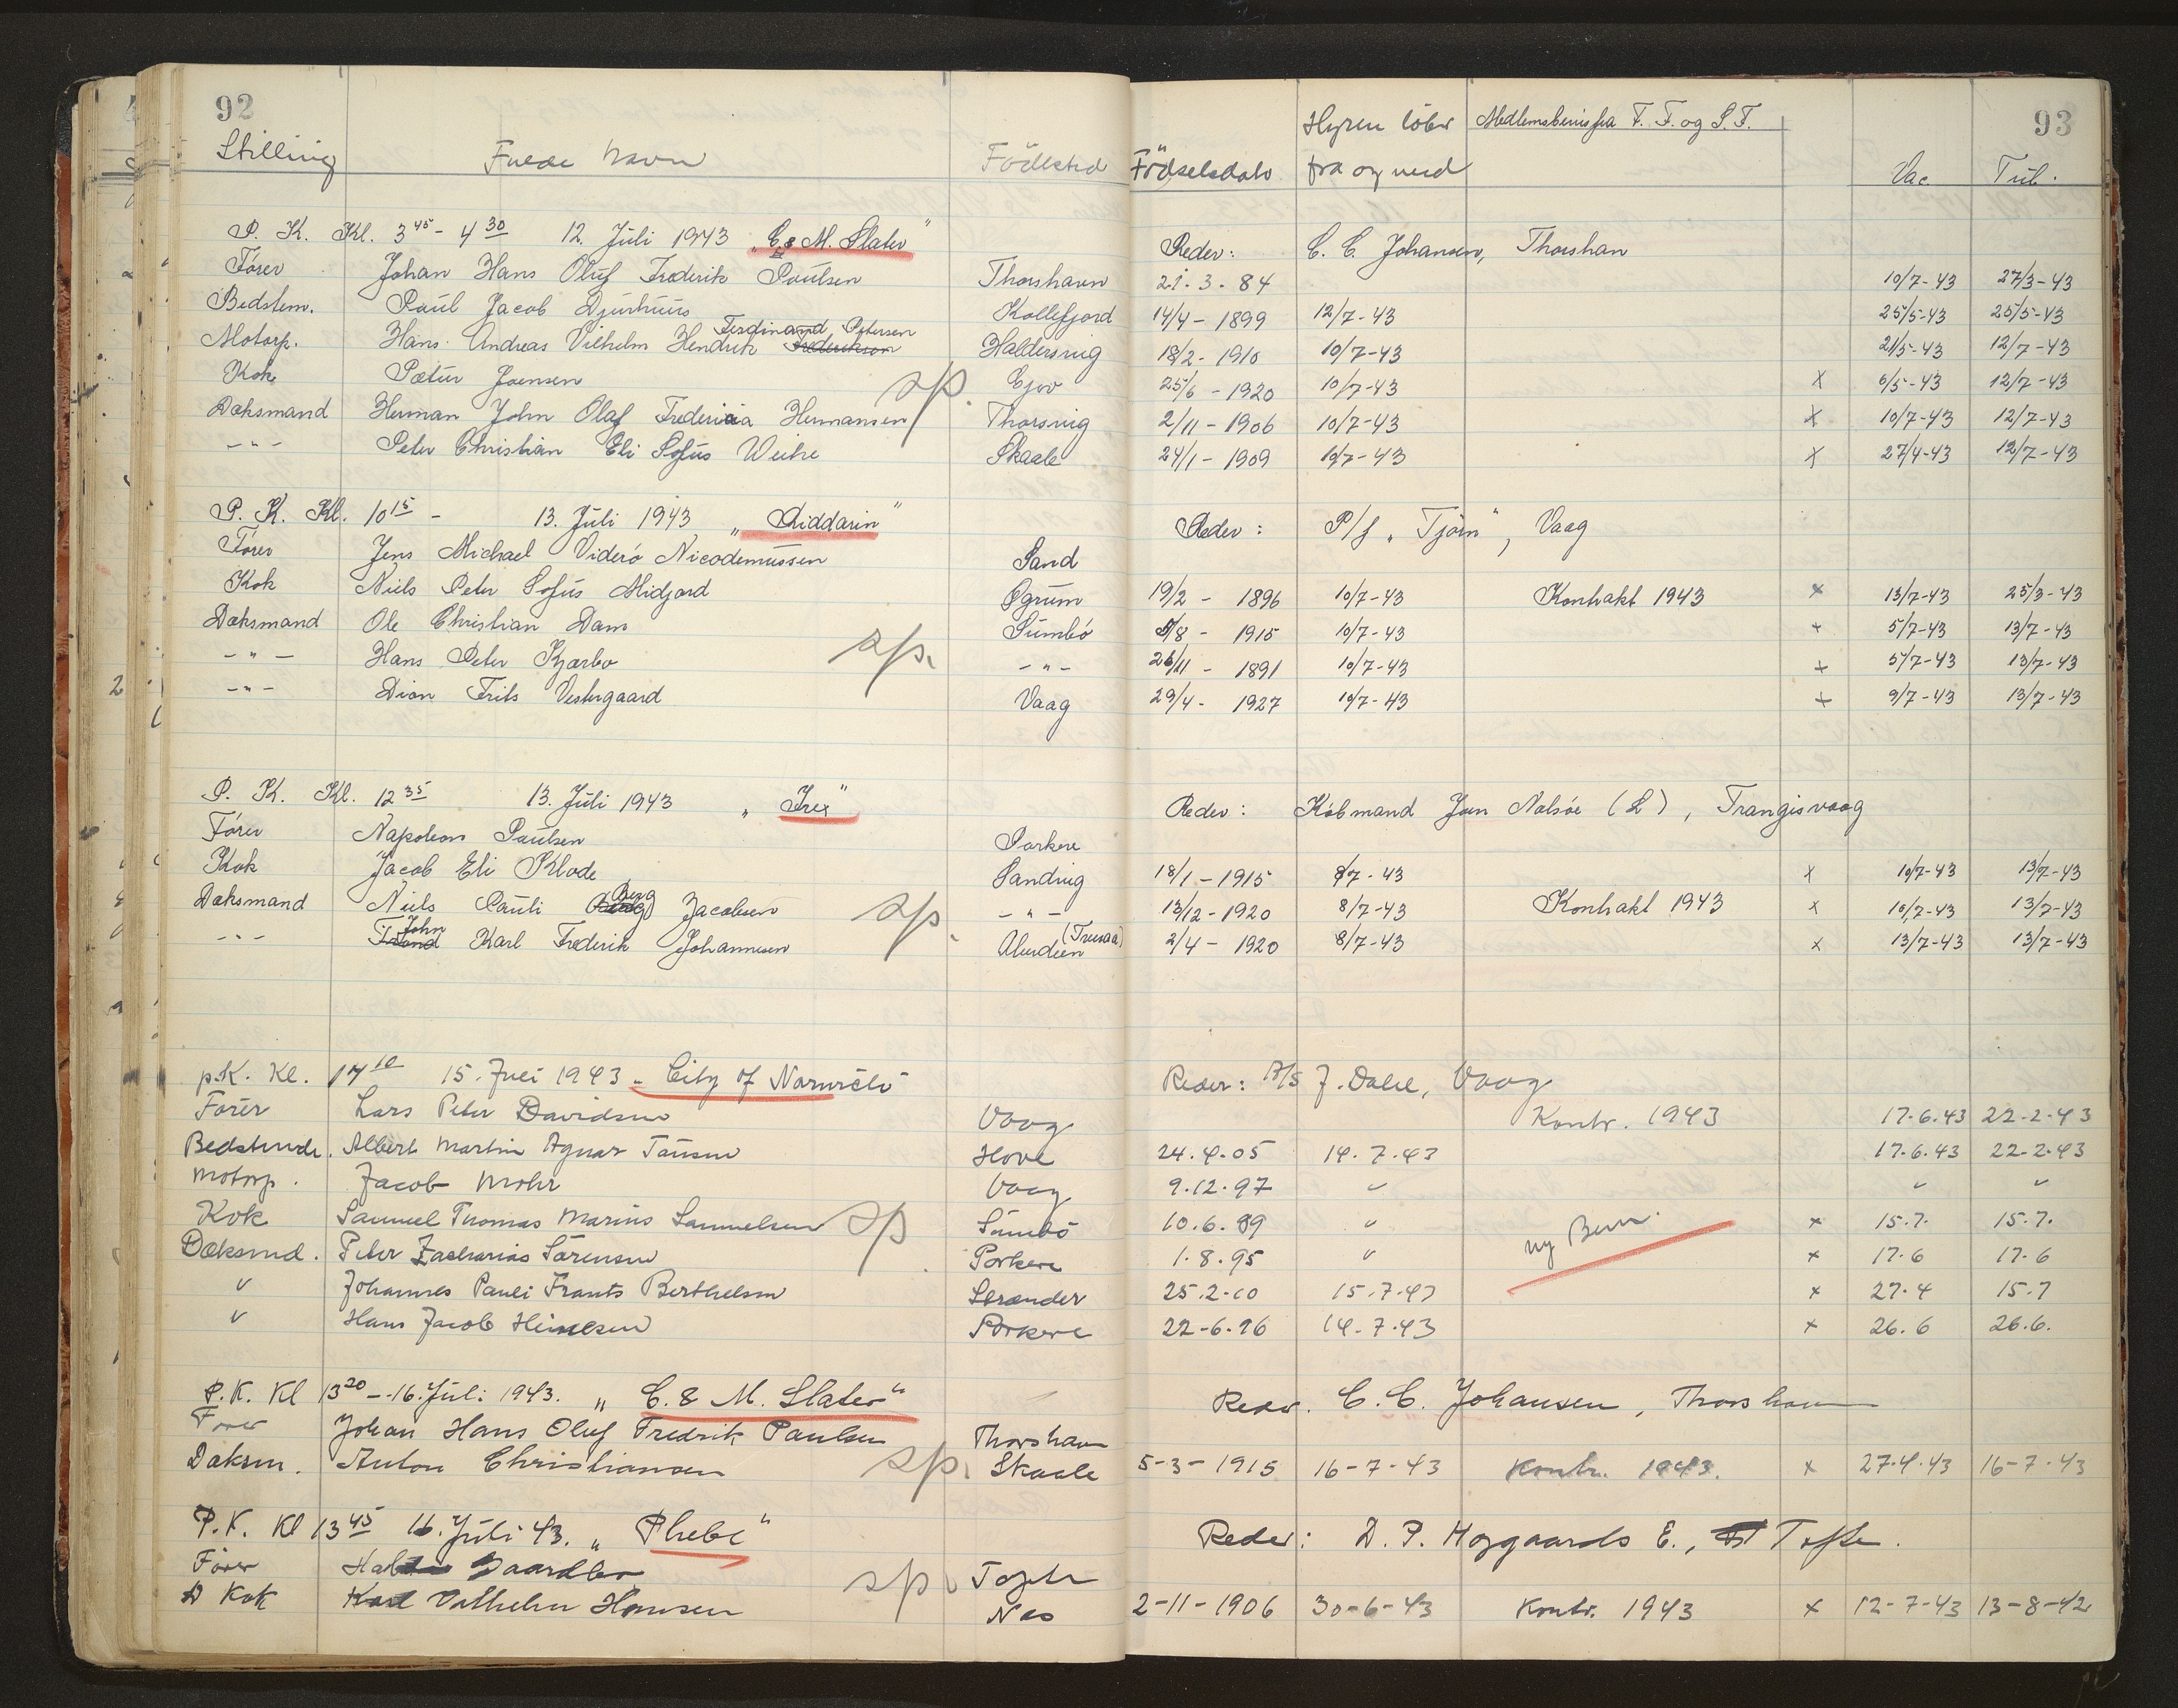 92 93
Hyren löber Medlemsbevis fra F. F. og S. F.
Stilling Fulde Navn Födested Födselsdato fra og med Vac. Tub.
P. K. Kl. 3 45 - 4 30 12. Juli 1943 „C. & M. Slater" Reder: C. C. Johansen, Thorshavn
Förer Johan Hans Oluf Frederik Paulsen Thorshavn 21-3-84 10/7-43 27/3-43
Bedstem. Paul Jacob Djurhuus Kollefjord 14/4-1899 12/7-43 25/5-43 25/5-43
Ferdinand Petersen
Motorp. Hans Andreas Vilhelm Hendrik Frederiksen Haldersvig 18/2-1910 10/7-43 21/5-43 12/7-43
Kok Pætur Joensen sp. Ejov 25/6-1920 10/7-43 x 6/5-43 12/7-43
Dæksmand Herman John Olaf Fredericia Hermansen Thorsvig 2/11-1906 10/7-43 x 10/7-43 12/7-43
-"- Peter Christian Eli Sofus Weihe Skaale 24/1-1909 10/7-43 x 27/4-43 12/7-43
P. K. Kl. 10 15 - 13. Juli 1943 „Riddarin" Reder: P/f „Tjörn", Vaag
Förer Jens Michael Viderö Nicodemussen Sand
Kok Niels Peter Sofus Midjord Øgrum 19/2-1896 10/7-43 Kontrakt 1943 x 13/7-43 25/3-43
Dæksmand Ole Christian Dam Sumbö 5/8-1915 10/7-43 + 5/7-43 13/7-43
-"- Hans Peter Kjærbo sp. -"- 26/11-1891 10/7-43 + 5/7-43 13/7-43
-"- Dion Frits Vestergaard Vaag 29/4-1927 10/7-43 + 9/7-43 13/7-43
P. K. Kl. 12 35 13. Juli 1943 „Irex" Reder: Köbmand Jon Nolsöe (L), Trangisvaag
Förer Napoleon Paulsen Porkere
Kok Jacob Eli Klode Sandvig 18/1-1915 8/7-43 x 10/7-43 13/7-43
Berg
Dæksmand Niels Pauli Jacobsen sp. -"- 13/12-1920 8/7-43 Kontrakt 1943 x 10/7-43 13/7-43
John
-"- Trond Karl Frederik Johannesen Aberdeen 2/4-1920 8/7-43 x 13/7-43 13/7-43
p.K. Kl. 17 10 15. Juli 1943 „City of Norwich" Reder: A/S J. Dahl, Vaag
Förer Lars Peter Davidsen Vaag Kontr. 1943 17.6.43 22-2-43
Bedstmd. Albert Martin Agnar Tausen Hove 24.4.05 14.7.43 17.6.43 22-2-43
Motorp. Jacob Mohr Vaag 9.12.97 " " "
Kok Samuel Thomas Marius Samuelsen sp Sumbö 10.6.89 " ny Bevis. x 15.7. 15.7.
Dæksmd. Peter Zacharias Sörensen Porkere 1.8.95 " x 17.6 17.6
" Johannes Pauli Frants Berthelsen Strænder 25.2.10 15.7.43 x 27.4 15.7
" Hans Jacob Heinesen Porkere 22-6-26 14.7.43 x 26.6 26.6.
P.K. Kl 13 20 - 16. Juli 1943. „C. & M. Slater" Reder. C. C. Johansen, Thorshavn
Förer Johan Hans Oluf Fredrik Paulsen Thorshavn
Dæksm. Anton Christiansen sp. Skaale 5-3-1915 16-7-43 Kontr. 1943. x 27.4.43 16-7-43
P.K. Kl 13 45 16. Juli 43. „Phebe" Reder: D. P. Højgaards E., Tofte.
Förer Gaardbo sp.
Kok Karl Vilhelm Hansen Nes 2-11-1906 30-6-43 Kontr. 1943 x 12-7-43 13-8-42